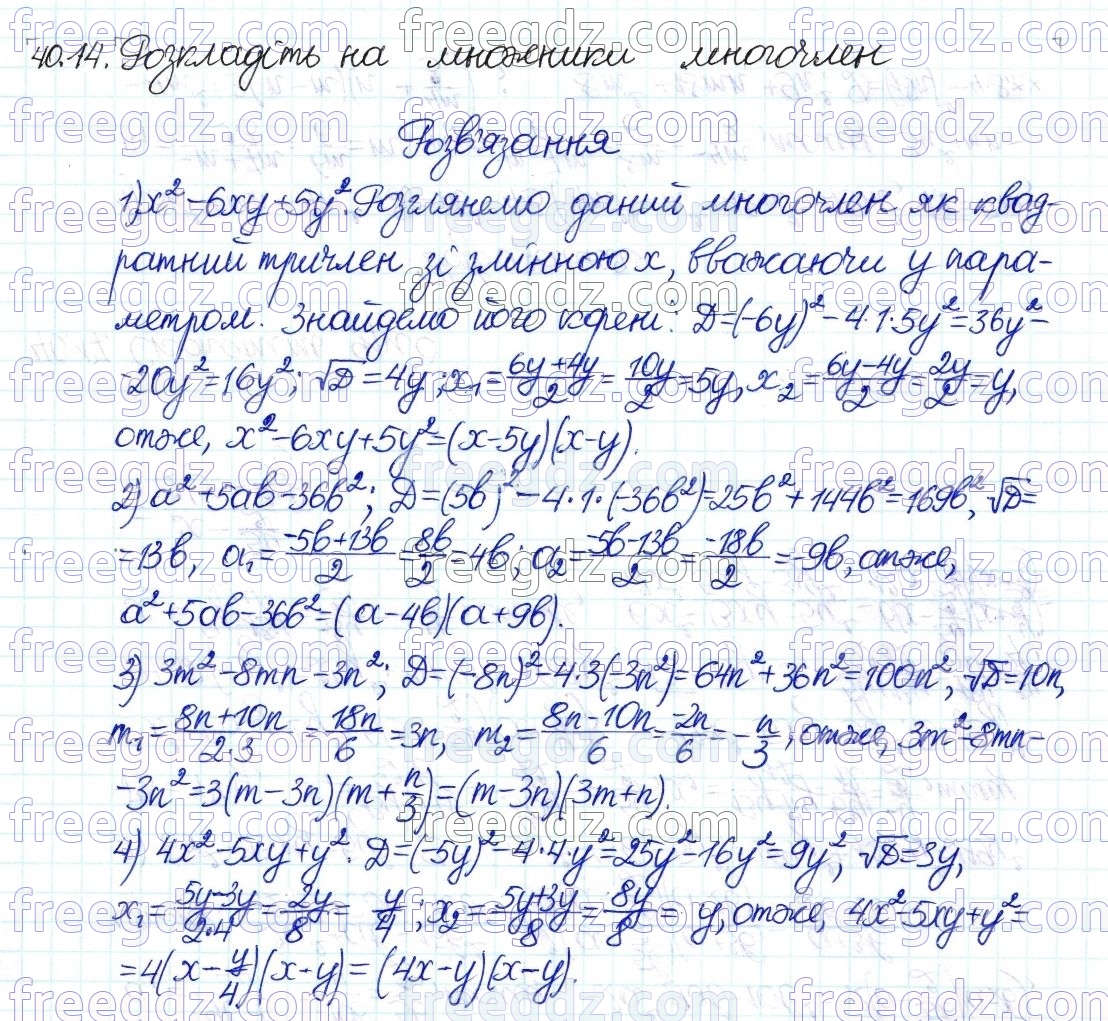 40.14. Розкладіть на множники многочлен
Розв'язання
1) x² - 6xy + 5y². Розглянемо даний многочлен як квад-
ратний тричлен зі змінною x, вважаючи y пара-
метром. Знайдемо його корені: D = (-6y)² - 4·1·5y² = 36y² -
- 20y² = 16y²; √D = 4y; x₁ = (6y + 4y)/2 = 10y/2 = 5y, x₂ = (6y - 4y)/2 = 2y/2 = y,
отже, x² - 6xy + 5y² = (x - 5y)(x - y).
2) a² + 5ab - 36b²; D = (5b)² - 4·1·(-36b²) = 25b² + 144b² = 169b², √D =
= 13b, a₁ = (-5b + 13b)/2 = 8b/2 = 4b; a₂ = (-5b - 13b)/2 = -18b/2 = -9b, отже,
a² + 5ab - 36b² = (a - 4b)(a + 9b).
3) 3m² - 8mn - 3n²; D = (-8n)² - 4·3(-3n²) = 64n² + 36n² = 100n², √D = 10n,
m₁ = (8n + 10n)/(2·3) = 18n/6 = 3n, m₂ = (8n - 10n)/6 = -2n/6 = -n/3; отже, 3m² - 8mn -
- 3n² = 3(m - 3n)(m + n/3) = (m - 3n)(3m + n).
4) 4x² - 5xy + y². D = (-5y)² - 4·4·y² = 25y² - 16y² = 9y², √D = 3y,
x₁ = (5y - 3y)/(2·4) = 2y/8 = y/4; x₂ = (5y + 3y)/8 = 8y/8 = y, отже, 4x² - 5xy + y² =
= 4(x - y/4)(x - y) = (4x - y)(x - y).
freegdz.com